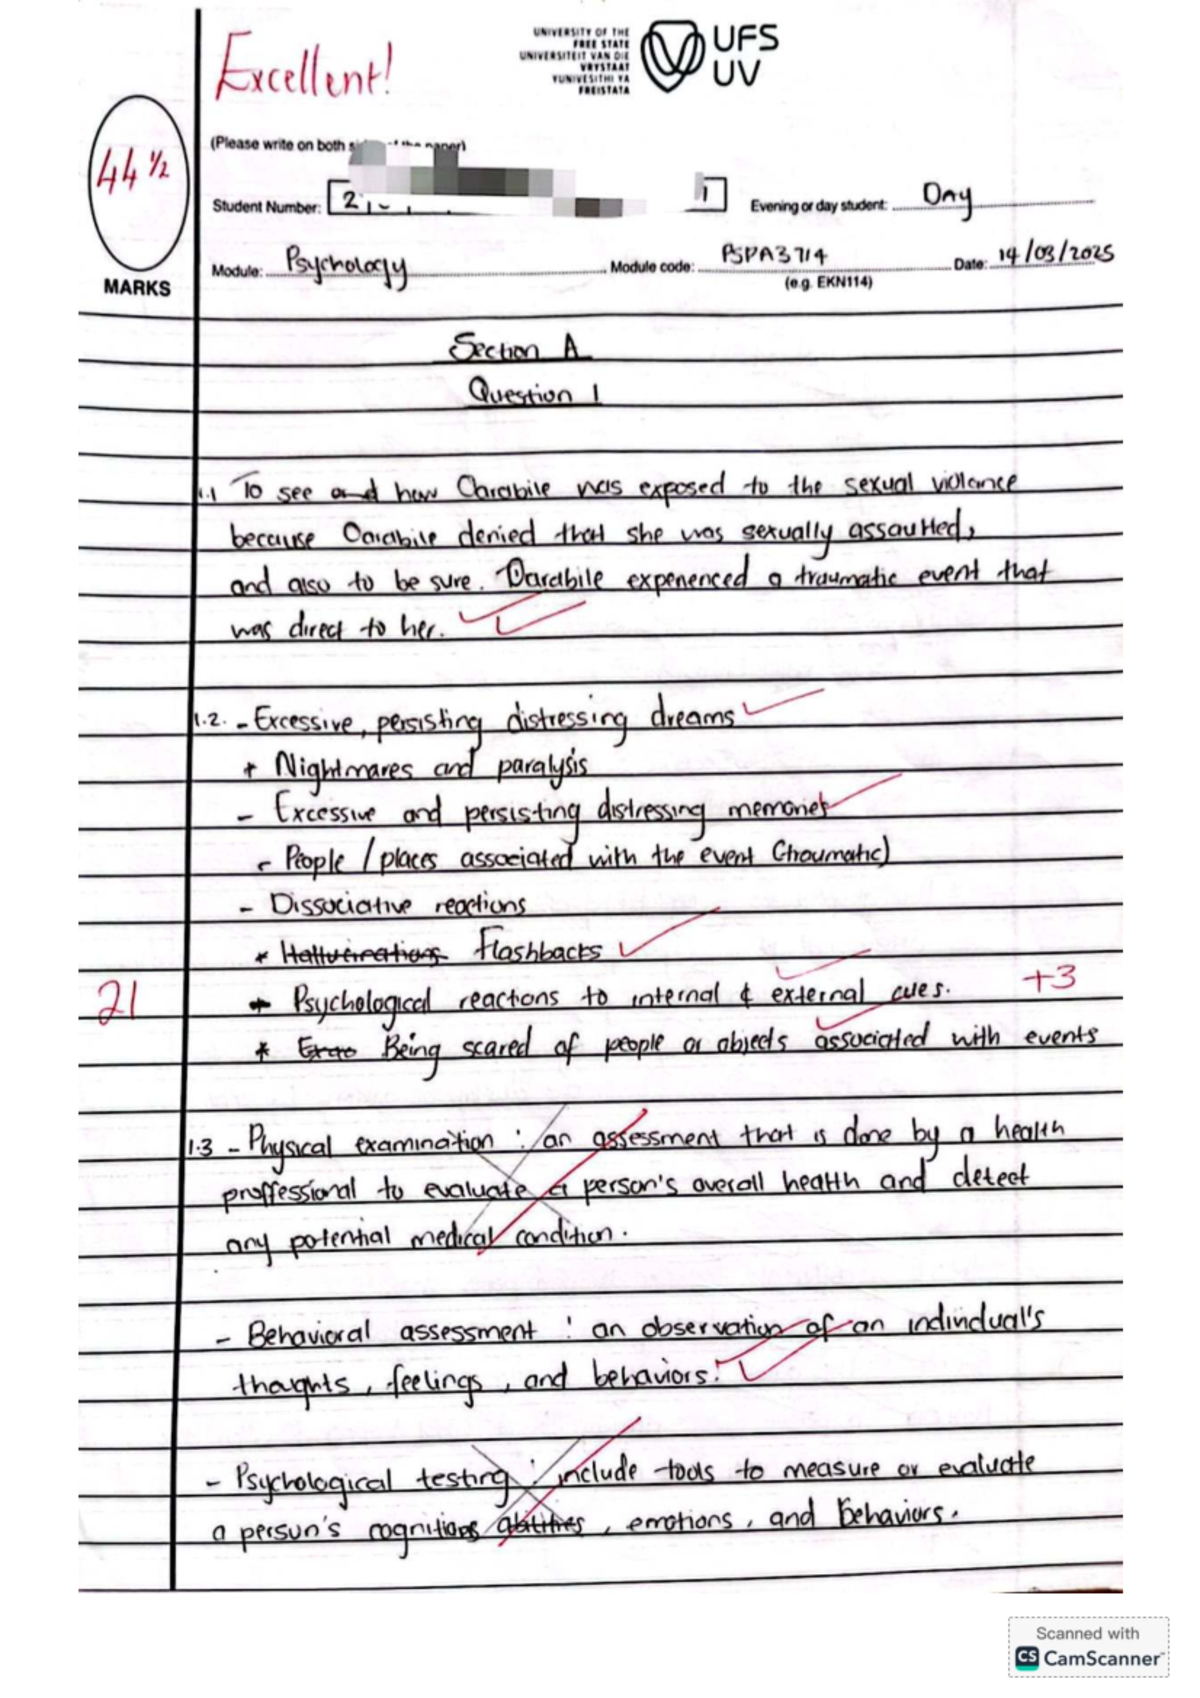 Excellent!
UNIVERSITY OF THE
FREE STATE
UNIVERSITEIT VAN DIE
VRYSTAAT
YUNIVESITHI YA
FREISTATA
UFS
UV
44 ½
MARKS
(Please write on both
Student Number: 2
Evening or day student: Day
Module: Psychology Module code: PSPA3714 Date: 14/03/2025
(e.g. EKN114)
Section A
Question 1
1.1 To see and how Oarabile was exposed to the sexual violance
because Oarabile denied that she was sexually assaulted,
and also to be sure. Oarabile experienced a traumatic event that
was direct to her.
1.2. - Excessive, persisting distressing dreams
+ Nightmares and paralysis
- Excessive and persisting distressing memories
- People / places associated with the event
- Dissociative reactions
* Hallucinations Flashbacks
21
Psychological reactions to internal & external cues. +3
* Being scared of people or objects associated with events
1.3 - Physical examination : an assessment that is done by a health
proffessional to evaluate a person's overall health and detect
any potential medical condition.
- Behavioral assessment : an observation of an individual's
thoughts, feelings, and behaviors.
- Psychological testing : include tools to measure or evaluate
a person's cognitions abilities, emotions, and behaviors.
Scanned with
CS CamScanner